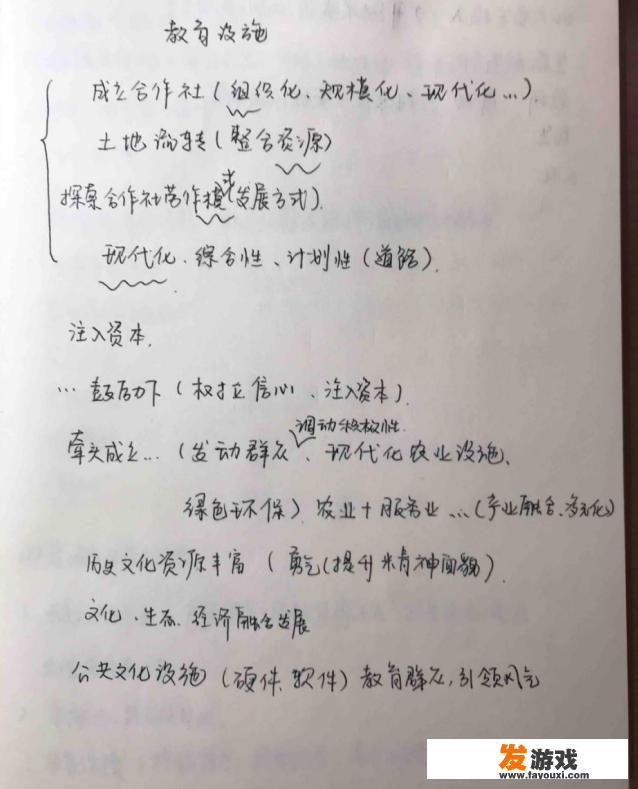 教育设施
成立合作社(组织化、规模化、现代化...)
土地流转(整合资源)
探索合作社营作模式发展方式).
现代化、综合性、计划性(道路).
注入资本.
...鼓励下(树立信心、注入资本).
调动积极性.
牵头成立...(发动群众、现代化农业设施、
绿色环保)农业+服务业...(产业融合、多元化)
历史文化资源丰富(勇气(提升精神面貌).
文化、生态、经济融合发展
公共文化设施(硬件、软件)教育群众,引领风气
发游戏
www.fayouxi.com